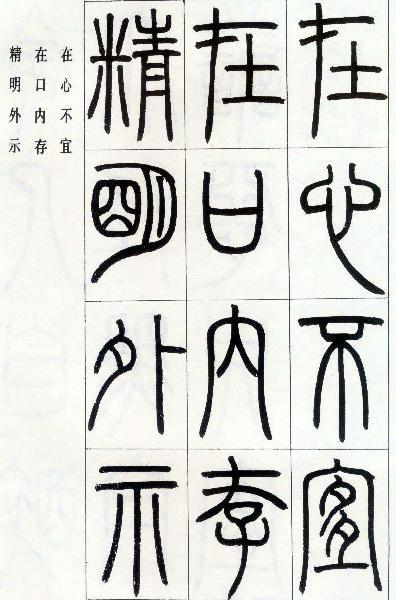 在心不宜
在口内存
精明外示
在心不宜
在口内存
精明外示